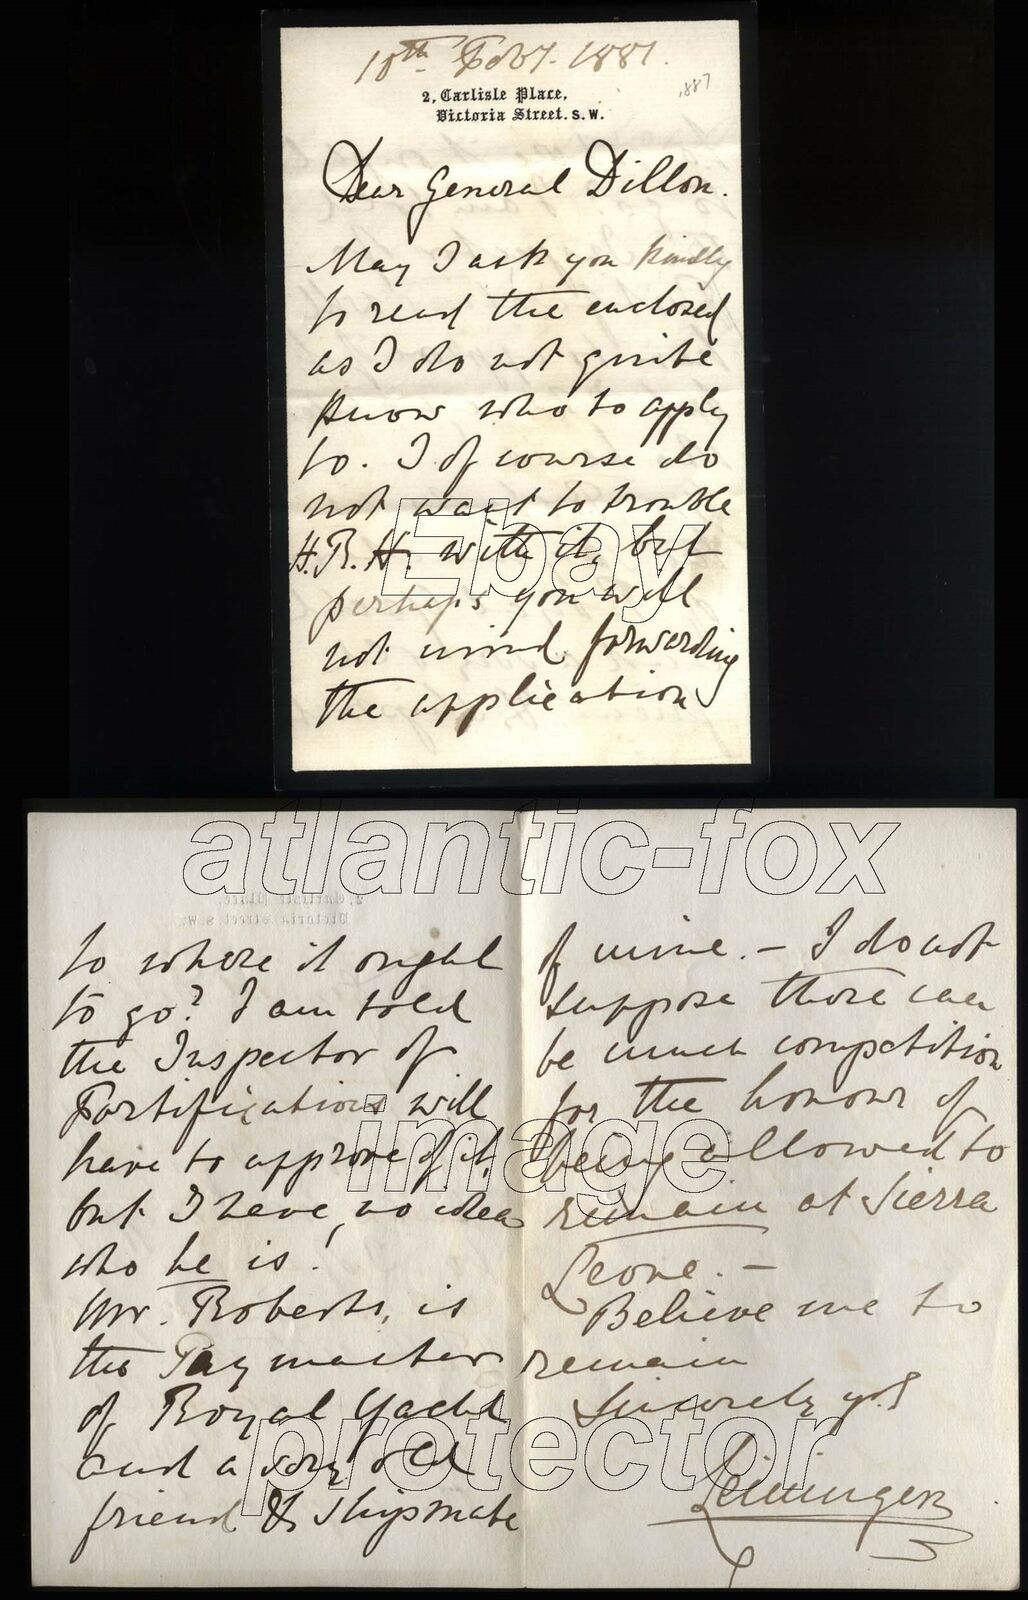 10th Feby. 1887.
1887
2, Carlisle Place,
Victoria Street. S.W.
Dear General Dillon.
May I ask you kindly
to read the enclosed
as I do not quite
know who to apply
to. I of course do
not want to trouble
H.R.H. with it, but
perhaps you will
not mind forwarding
the application
to where it ought
to go? I am told
the Inspector of
Fortifications will
have to approve of it,
but I have no idea
who he is!
Mr. Roberts, is
the Paymaster
of Royal Yacht
and a very old
friend & shipmate
of mine. – I do not
suppose there can
be much competition
for the honour of
being allowed to
remain at Sierra
Leone. –
Believe me to
remain
Sincerely yrs
Leiningen
Ebay
atlantic-fox
image
protector